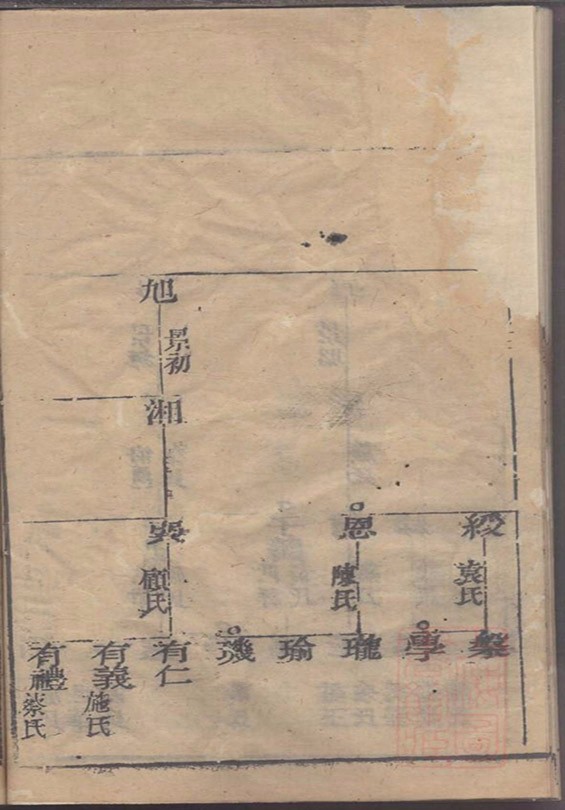 旭
景初
湘
綬
袁氏
恩
陳氏
顧氏
學
瓏
瑜
璣
有仁
有義
施氏
有禮
蔡氏